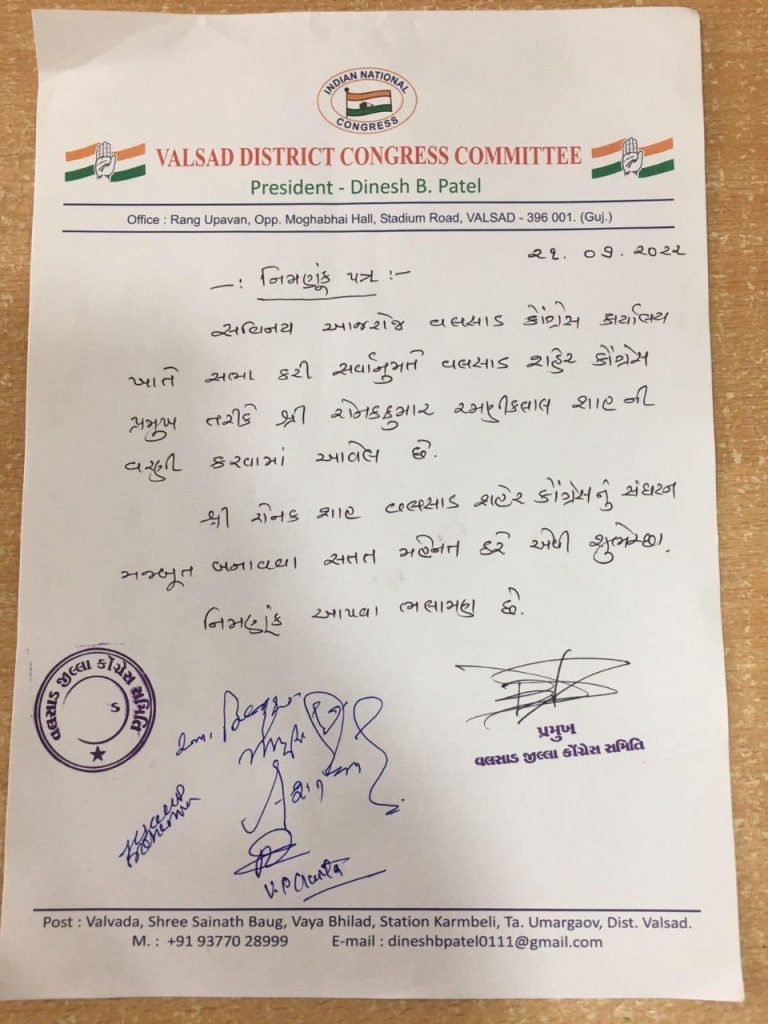 INDIAN NATIONAL
CONGRESS
VALSAD DISTRICT CONGRESS COMMITTEE
President - Dinesh B. Patel
Office : Rang Upavan, Opp. Moghabhai Hall, Stadium Road, VALSAD - 396 001. (Guj.)
૨૧. ૦૭. ૨૦૨૨
-: નિમણૂંક પત્ર :-
સવિનય આજરોજ વલસાડ કોંગ્રેસ કાર્યાલય
ખાતે સભા કરી સર્વાનુમતે વલસાડ શહેર કોંગ્રેસ
પ્રમુખ તરીકે શ્રી રોનકકુમાર રમણીકલાલ શાહ ની
વરણી કરવામાં આવેલ છે.
શ્રી રોનક શાહ વલસાડ શહેર કોંગ્રેસનું સંઘઠન
મજબૂત બનાવવા સતત મહેનત કરે એવી શુભેચ્છા.
નિમણૂંક આપવા ભલામણ છે.
વલસાડ જીલ્લા કોંગ્રેસ સમિતિ
S
પ્રમુખ
વલસાડ જીલ્લા કોંગ્રેસ સમિતિ
Post : Valvada, Shree Sainath Baug, Vaya Bhilad, Station Karmbeli, Ta. Umargaov, Dist. Valsad.
M. : +91 93770 28999 E-mail : dineshbpatel0111@gmail.com